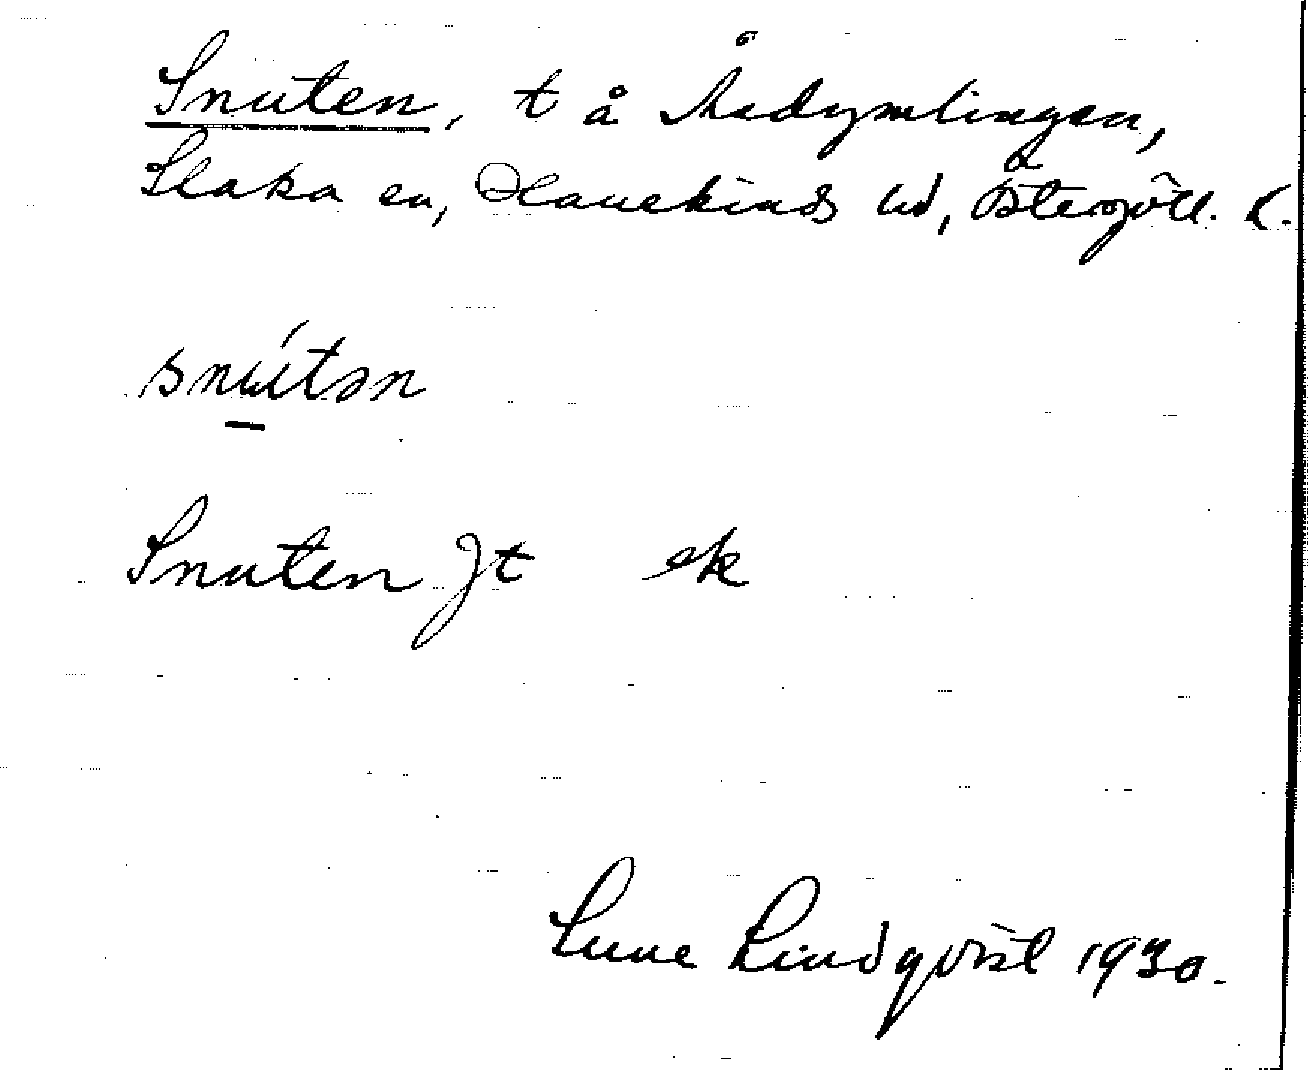 Snuten, t å Åsdymlingen,
Slaka sn, Hanekinds hd, Östergötl. l.
snú̲tən
Snuten Jt ek
Sune Lindqvist 1930.